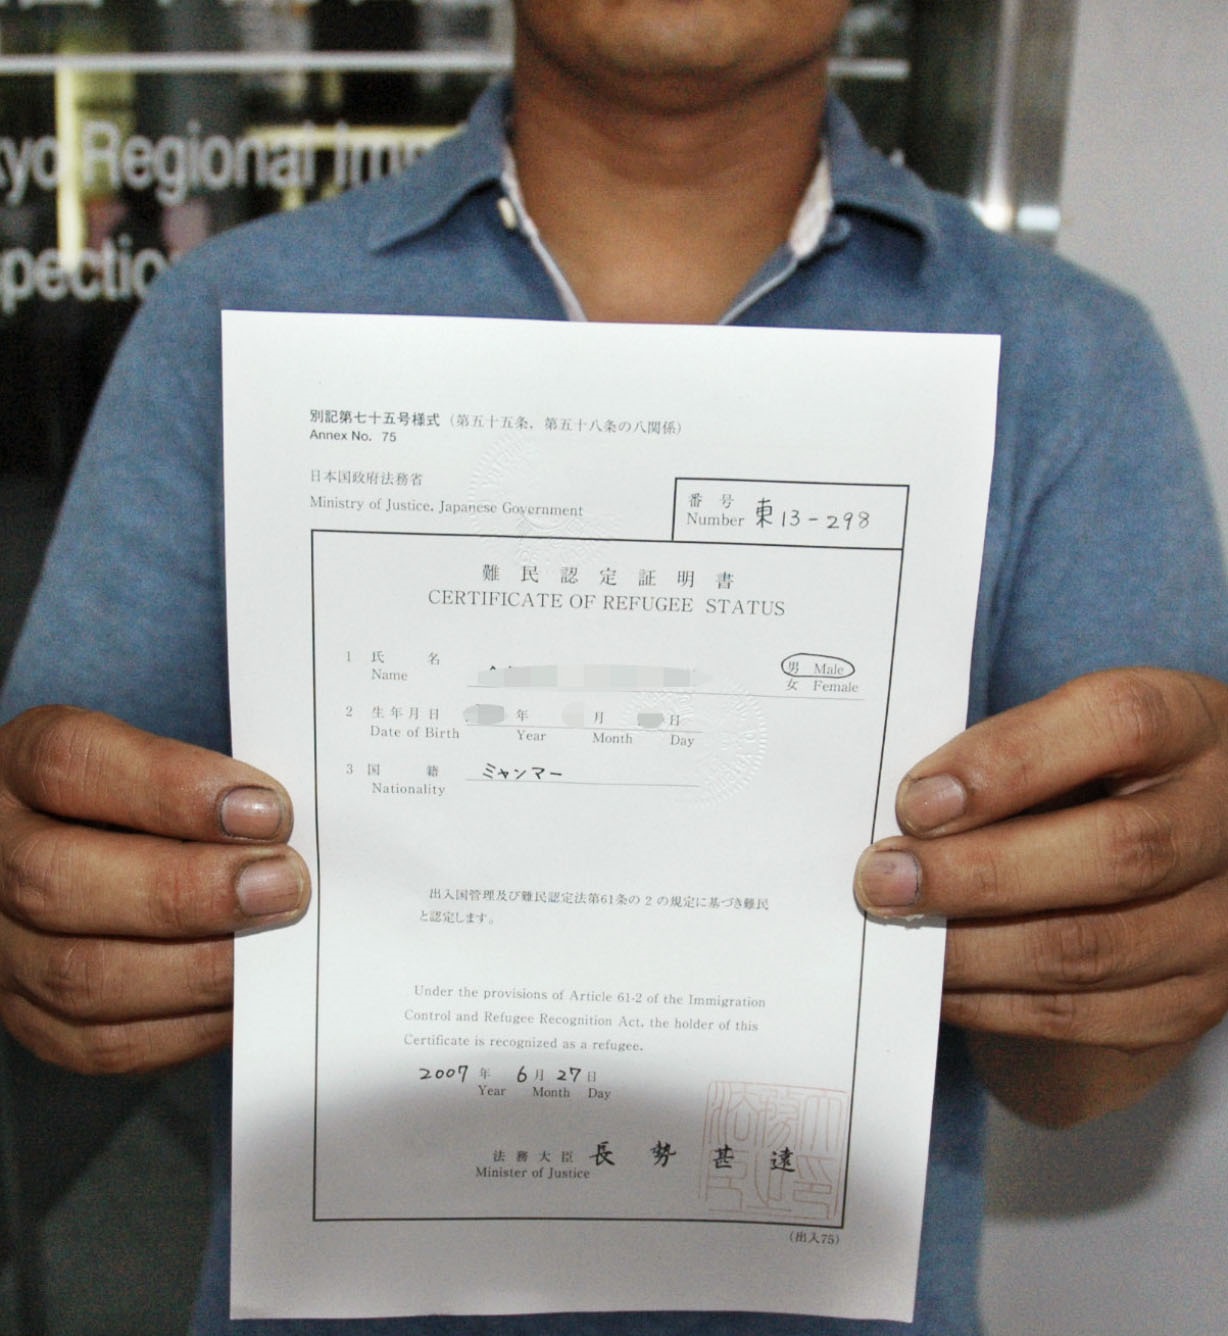 yo Regional Im
pectio
別記第七十五号様式（第五十五条，第五十八条の八関係）
Annex No. 75
日本国政府法務省
Ministry of Justice, Japanese Government
番 号
Number 東13-298
難 民 認 定 証 明 書
CERTIFICATE OF REFUGEE STATUS
1 氏 名 男 Male
Name 女 Female
2 生年月日 年 月 日
Date of Birth Year Month Day
3 国 籍 ミャンマー
Nationality
出入国管理及び難民認定法第61条の２の規定に基づき難民
と認定します。
Under the provisions of Article 61-2 of the Immigration
Control and Refugee Recognition Act, the holder of this
Certificate is recognized as a refugee.
2007 年 6 月 27 日
Year Month Day
法 務 大 臣 長 勢 甚 遠
Minister of Justice
（出入75）